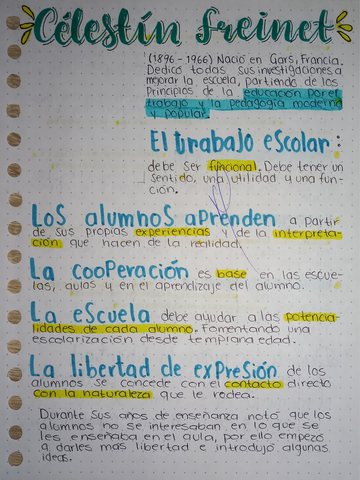 Célestin freinet
(1896 - 1966) Nació en Gars, Francia.
Dedicó todas sus investigaciones a
mejorar la escuela, partiendo de los
Principios de la educación por el
trabajo y la pedagogía moderna
y popular.
El trabajo escolar:
debe ser funcional. Debe tener un
sentido, una utilidad y una fun-
ción.
Los alumnos aprenden a partir
de sus propias experiencias y de la interpreta-
ción que hacen de la realidad.
La cooperación es base en las escue-
las, aulas y en el aprendizaje del alumno.
La escuela debe ayudar a las potencia-
lidades de cada alumno. Fomentando una
escolarización desde temprana edad.
La libertad de expresión de los
alumnos se concede con el contacto directo
con la naturaleza que le rodea.
Durante sus años de enseñanza notó que los
alumnos no se interesaban en lo que se
les enseñaba en el aula, por ello empezó
a darles más libertad e introdujo algunas
ideas.